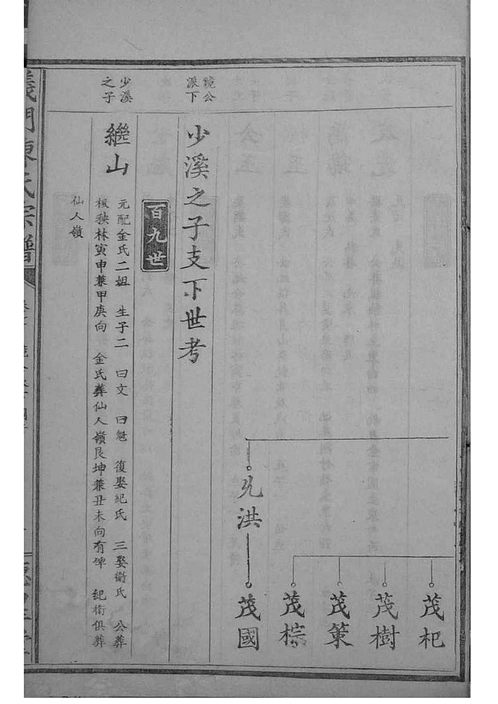 茂杞
茂樹
茂策
茂棕
茂國
洪
公派下
少溪之子支下世考
百九世
少溪之子
繼山
元配金氏二姐 生子二 曰文 曰魁 復娶紀氏 三娶衛氏 公葬
林寅申兼甲庚向 金氏葬仙人嶺艮坤兼丑未向有碑 紀衛俱葬
仙人嶺
義門陳氏宗譜